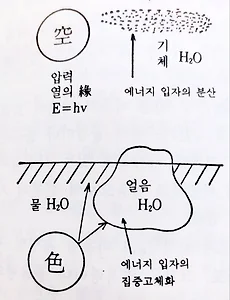 空
압력
열의 緣
E=hv
기
체 H₂O
에너지 입자의 분산
물 H₂O
얼음
H₂O
色
에너지 입자의
집중고체화